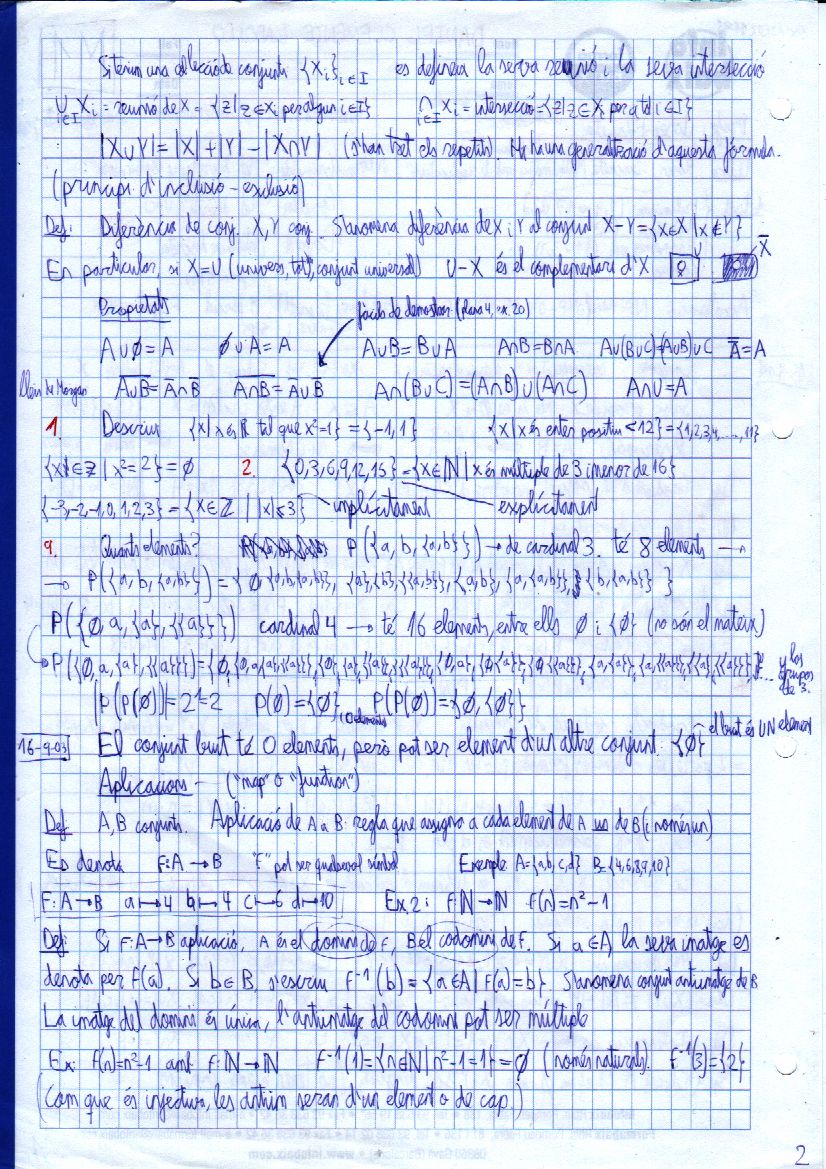 Si tenim una col·lecció de conjunts {Xᵢ}ᵢ∈I es defineix la seva reunió i la seva intersecció
∪ᵢ∈I Xᵢ = reunió de X = {z | z ∈ Xᵢ per algun i∈I} ∩ᵢ∈I Xᵢ = intersecció = {z | z ∈ Xᵢ per a tot i∈I}
|X∪Y| = |X| + |Y| − |X∩Y| (s'han tret els repetits). Hi ha una generalització d'aquesta fórmula.
(principi d'inclusió-exclusió)
Def: Diferència de conj. X, Y conj. S'anomena diferència de X i Y al conjunt X−Y = {x∈X | x∉Y}
En particular, si X=U (univers, "tot", conjunt universal) U−X és el complementari d'X X̅
Propietats fàcils de demostrar (plana 4, ex. 20)
A∪∅=A ∅∪A=A A∪B=B∪A A∩B=B∩A A∪(B∪C)=(A∪B)∪C A̿=A
Lleis de Morgan A̅∪̅B̅ = A̅∩B̅ A̅∩̅B̅ = A̅∪B̅ A∩(B∪C)=(A∩B)∪(A∩C) A∩U=A
1. Descriu {x | x és R tal que x²=1} = {-1,1} {x | x és enter positiu <12} = {1,2,3,4,...,11}
{x∈Z | x²=2} = ∅ 2. {0,3,6,9,12,15} = {x∈N | x és múltiple de 3 i menor de 16}
{-3,-2,-1,0,1,2,3} = {x∈Z | |x|≤3} implícitament explícitament
9. Quants elements? P({a,b,{a,b}}) → de cardinal 3. té 8 elements →
→ P({a,b,{a,b}}) = {∅,{a,b,{a,b}}, {a},{b},{{a,b}}, {a,b}, {a,{a,b}}, {b,{a,b}} }
P({∅,a,{a},{{a}}}) cardinal 4 → té 16 elements, entre ells ∅ i {∅} (no són el mateix)
P({∅,a,{a},{{a}}}) = {∅,{∅,a,{a},{{a}}},{∅},{a},{{a}},{{{a}}},{∅,a},{∅,{a}},{∅,{{a}}},{a,{a}},{a,{{a}}},{{a},{{a}}} ... y los grupos de 3.
|P(P(∅))|=2¹=2 P(∅)={∅} P(P(∅))={∅,{∅}}
0 elements
16-9-03 El conjunt buit té 0 elements, però pot ser element d'un altre conjunt. {∅} el buit és UN element
Aplicacions - ("map" o "function")
Def A,B conjunts. Aplicació de A a B: regla que assigna a cada element de A un de B (i només un)
Es denota F:A→B "F" pot ser qualsevol símbol Exemple A={a,b,c,d} B={4,6,8,9,10}
F:A→B a↦4 b↦4 c↦6 d↦10 Ex,2: f:N→N f(n)=n²−1
Def: Si F:A→B aplicació, A és el domini de F, B el codomini de F. Si a∈A, la seva imatge es
denota per F(a). Si b∈B, s'escriu F⁻¹(b)={a∈A | F(a)=b}. S'anomena conjunt antiimatge de B
La imatge del domini és única, l'antiimatge del codomini pot ser múltiple
Ex: f(n)=n²−1 amb f:N→N F⁻¹(1)={n∈N | n²−1=1}=∅ (només naturals). F⁻¹(3)={2}
(Com que és injectiva, les antiim seran d'un element o de cap.)
2